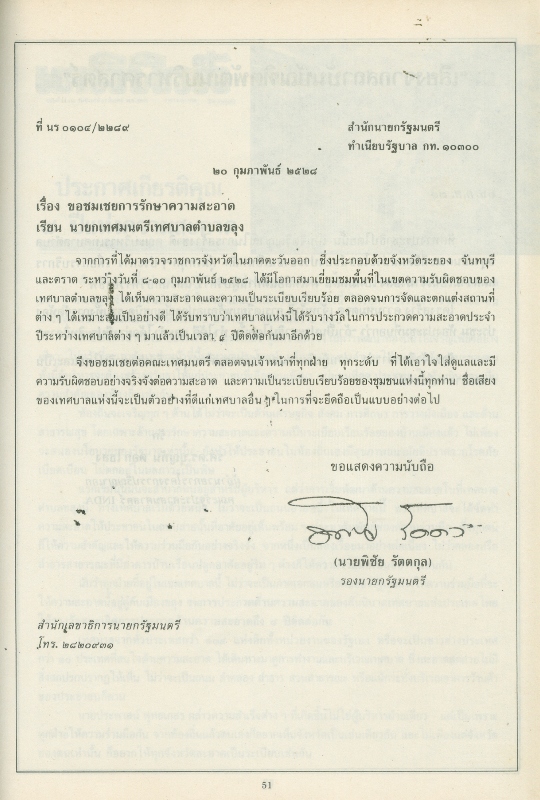 ที่ นร ๐๑๐๔/๒๒๘๙
สำนักนายกรัฐมนตรี
ทำเนียบรัฐบาล กท. ๑๐๓๐๐
๒๐ กุมภาพันธ์ ๒๕๒๘
เรื่อง ขอชมเชยการรักษาความสะอาด
เรียน นายกเทศมนตรีเทศบาลตำบลขลุง
จากการที่ได้มาตรวจราชการจังหวัดในภาคตะวันออก ซึ่งประกอบด้วยจังหวัดระยอง จันทบุรี
และตราด ระหว่างวันที่ ๘-๑๐ กุมภาพันธ์ ๒๕๒๘ ได้มีโอกาสมาเยี่ยมชมพื้นที่ในเขตความรับผิดชอบของ
เทศบาลตำบลขลุง ได้เห็นความสะอาดและความเป็นระเบียบเรียบร้อย ตลอดจนการจัดและตกแต่งสถานที่
ต่าง ๆ ได้เหมาะสมเป็นอย่างดี ได้รับทราบว่าเทศบาลแห่งนี้ได้รับรางวัลในการประกวดความสะอาดประจำ
ปีระหว่างเทศบาลต่าง ๆ มาแล้วเป็นเวลา ๔ ปีติดต่อกันมาอีกด้วย
จึงขอชมเชยต่อคณะเทศมนตรี ตลอดจนเจ้าหน้าที่ทุกฝ่าย ทุกระดับ ที่ได้เอาใจใส่ดูแลและมี
ความรับผิดชอบอย่างจริงจังต่อความสะอาด และความเป็นระเบียบเรียบร้อยของชุมชนแห่งนี้ทุกท่าน ชื่อเสียง
ของเทศบาลแห่งนี้จะเป็นตัวอย่างที่ดีแก่เทศบาลอื่น ๆ ในการที่จะยึดถือเป็นแบบอย่างต่อไป
ขอแสดงความนับถือ
(นายพิชัย รัตตกุล)
รองนายกรัฐมนตรี
สำนักเลขาธิการนายกรัฐมนตรี
โทร. ๒๘๒๐๙๓๑
51